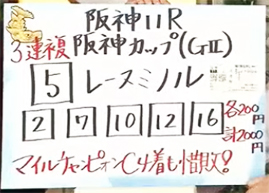 阪神11R
3連複阪神カップ(GII)
5 レースミノル
2 7 10 12 16 各200円
計2000円
マイルチャンピオンC4着も惜敗!